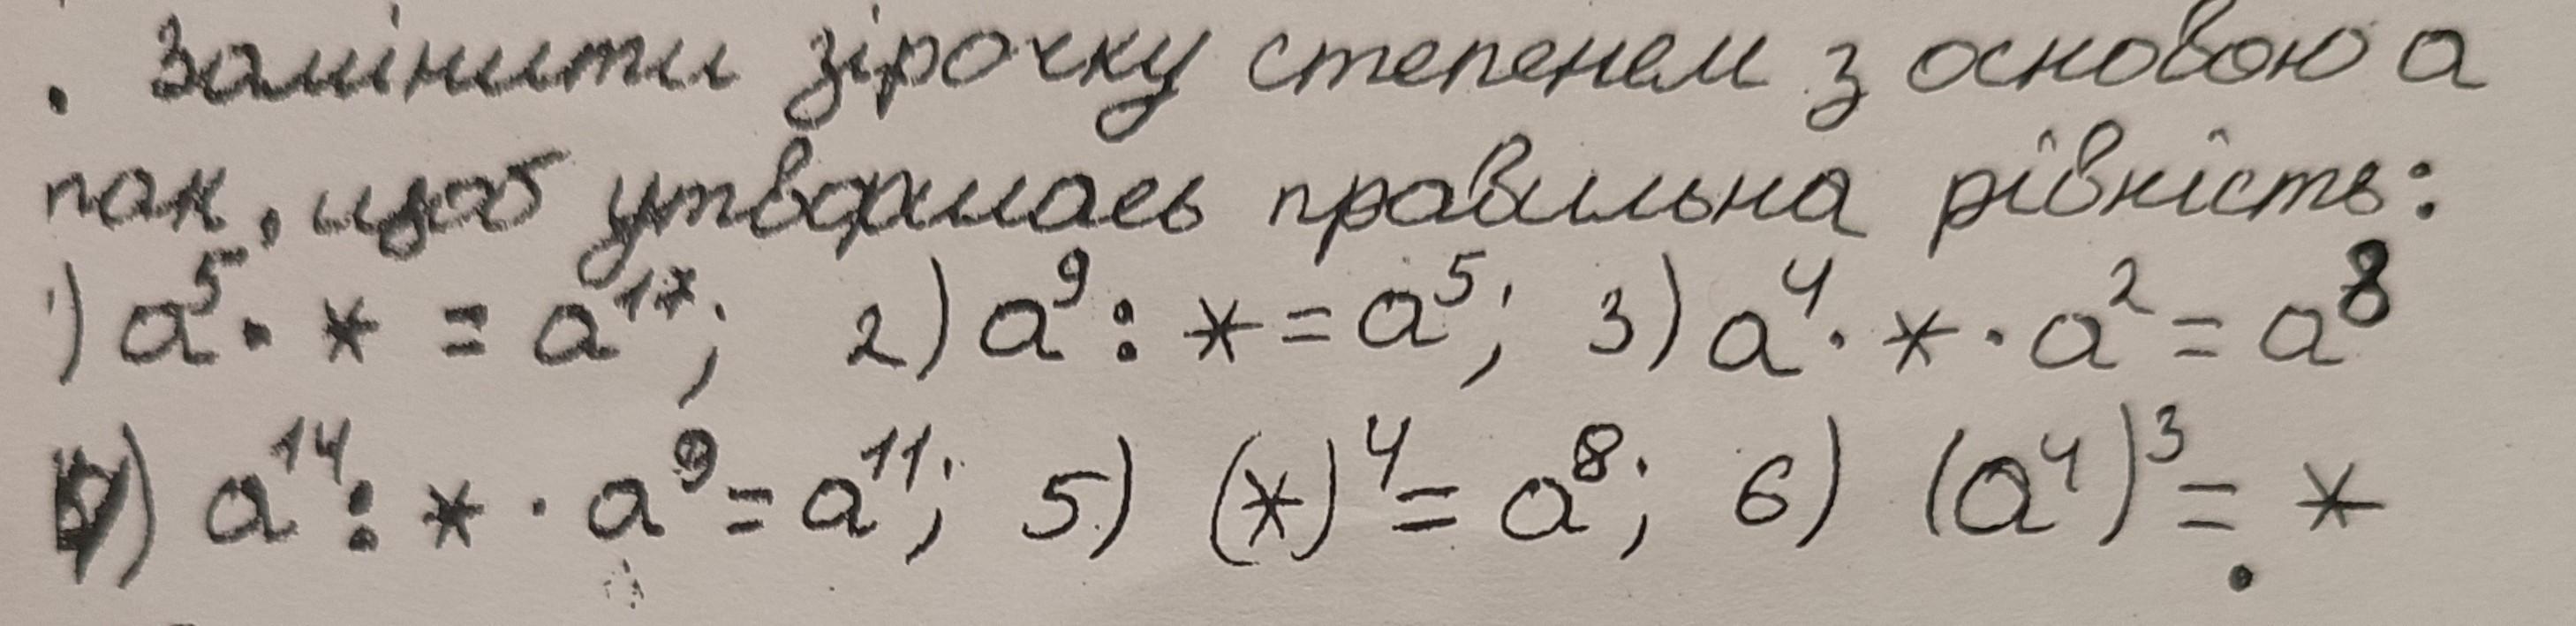 . Замінити зірочку степенем з основою a
так, щоб утворилась правильна рівність:
1) a⁵ · * = a¹⁷; 2) a⁹ : * = a⁵; 3) a⁴ · * · a² = a⁸
4) a¹⁴ : * · a⁹ = a¹¹; 5) (*)⁴ = a⁸; 6) (a⁴)³ = *